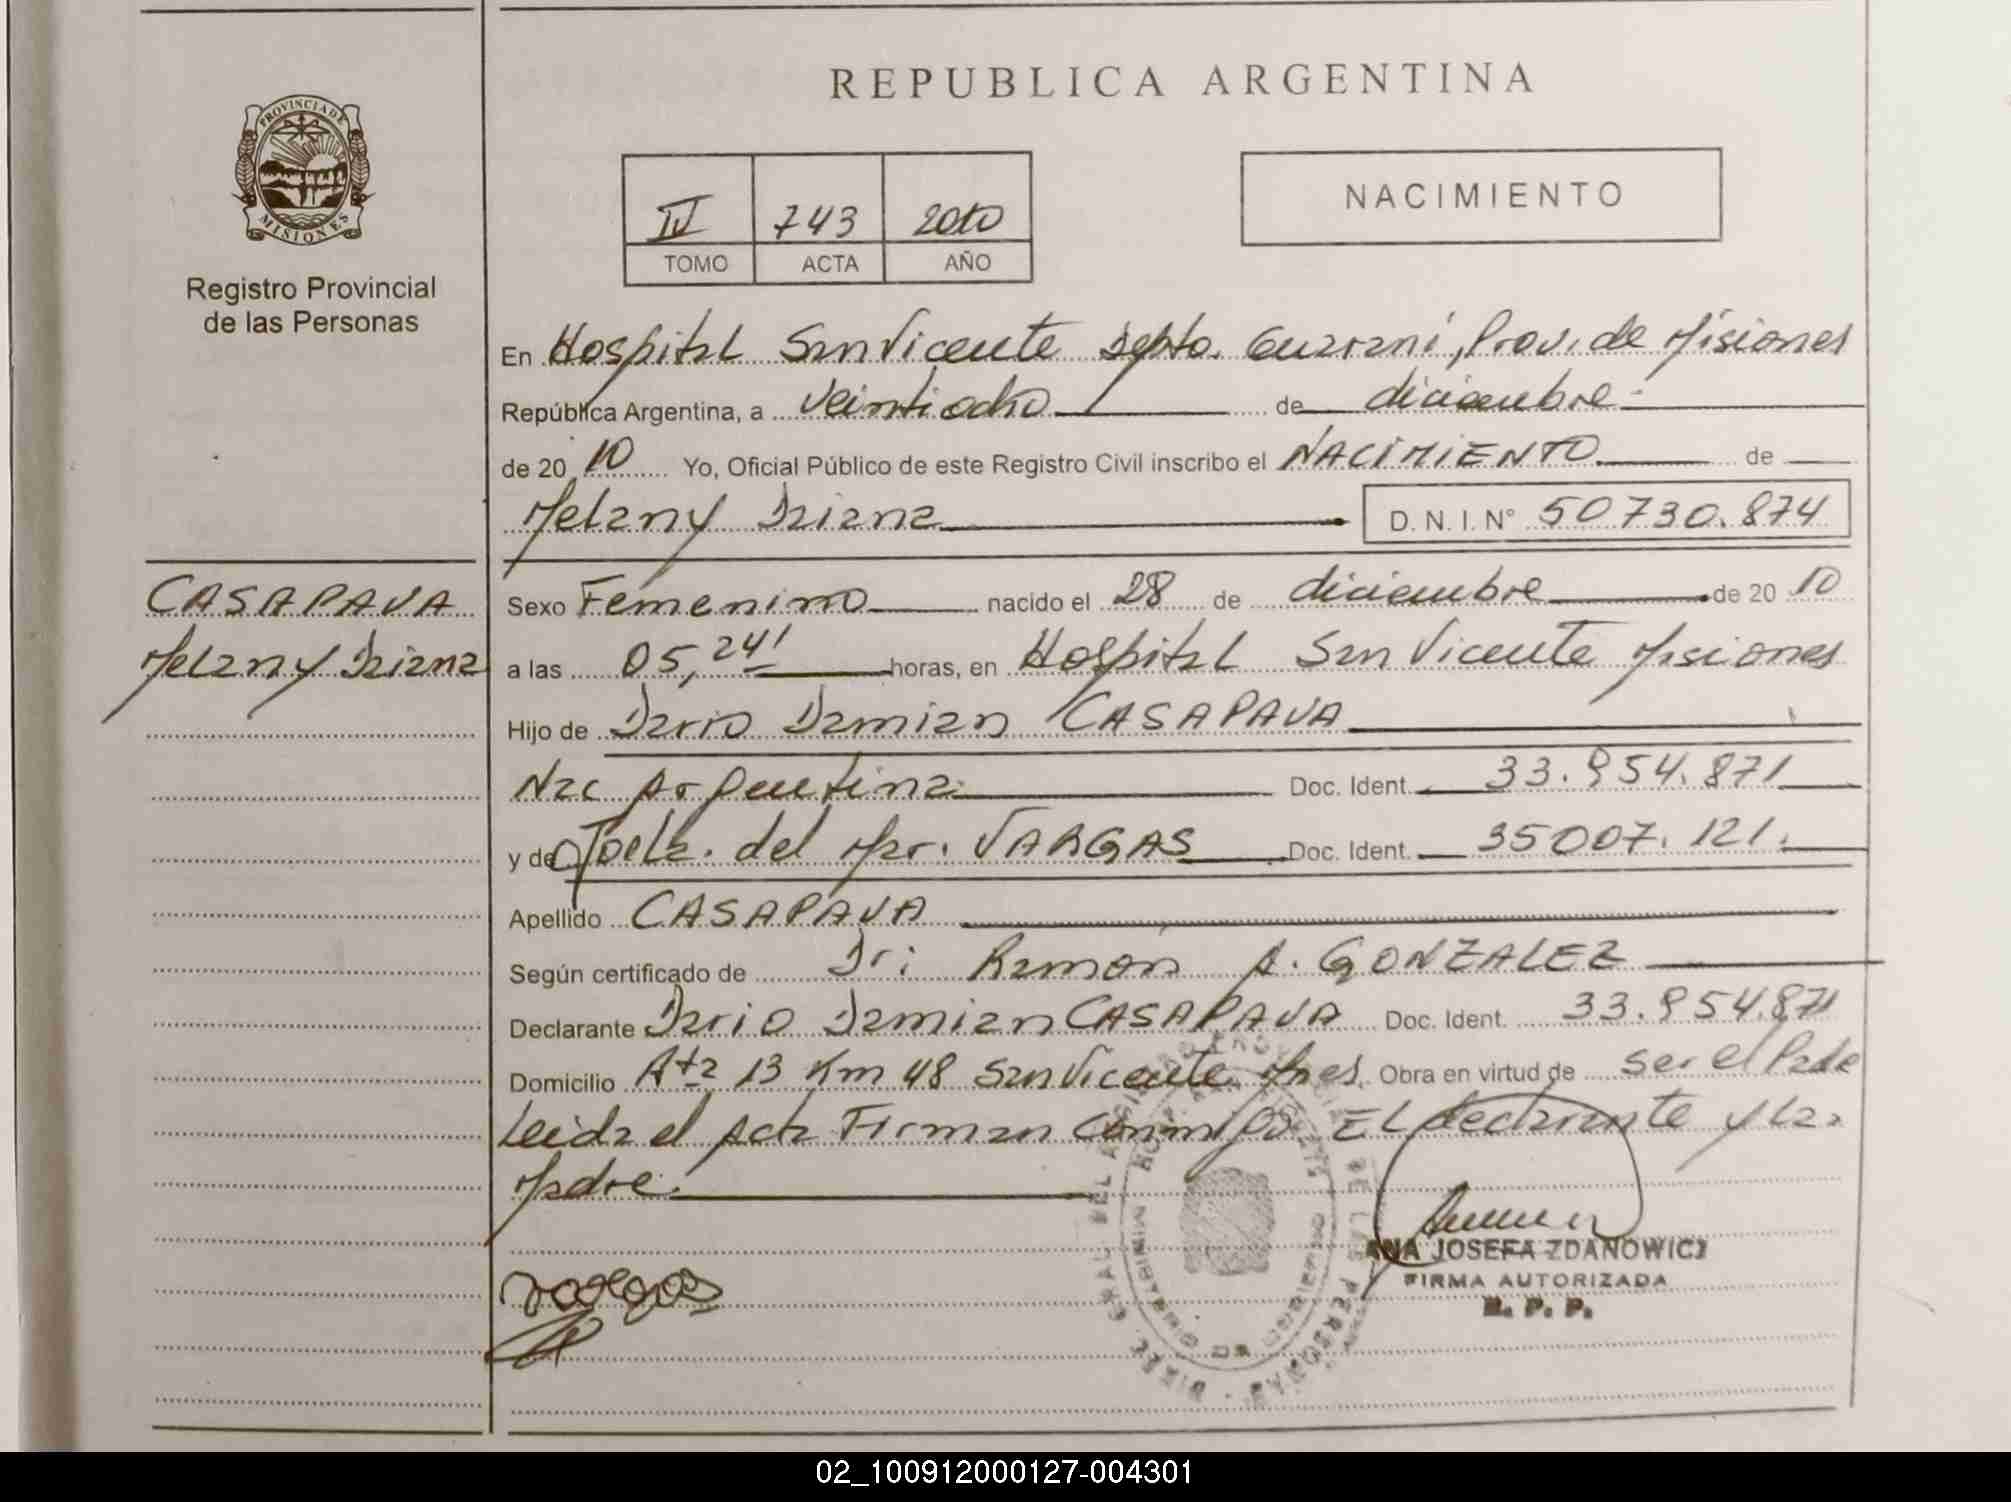 PROVINCIA DE
MISIONES
Registro Provincial
de las Personas
REPUBLICA ARGENTINA
IV 743 2010
TOMO ACTA AÑO
NACIMIENTO
En Hospital San Vicente Depto. Guaraní, Prov. de Misiones
República Argentina, a veintiocho de diciembre
de 20 10 Yo, Oficial Público de este Registro Civil inscribo el NACIMIENTO de
Melany Daiana D. N. I. N° 50730.874
CASAPAVA
Melany Daiana
Sexo Femenino nacido el 28 de diciembre de 20 10
a las 05,24' horas, en Hospital San Vicente Misiones
Hijo de Dario Damian CASAPAVA
Nac Argentina Doc. Ident. 33.954.871
y de Joela. del Mar. VARGAS Doc. Ident. 35007.121.
Apellido CASAPAVA
Según certificado de Dr: Ramon A. GONZALEZ
Declarante Dario Damian CASAPAVA Doc. Ident. 33.954.871
Domicilio Rta 13 Km 48 San Vicente Mnes. Obra en virtud de ser el Padre
Leida el Acta Firman Conmigo El declarante y La
Madre.
ANA JOSEFA ZDANOWICZ
FIRMA AUTORIZADA
R. P. P.
02_100912000127-004301